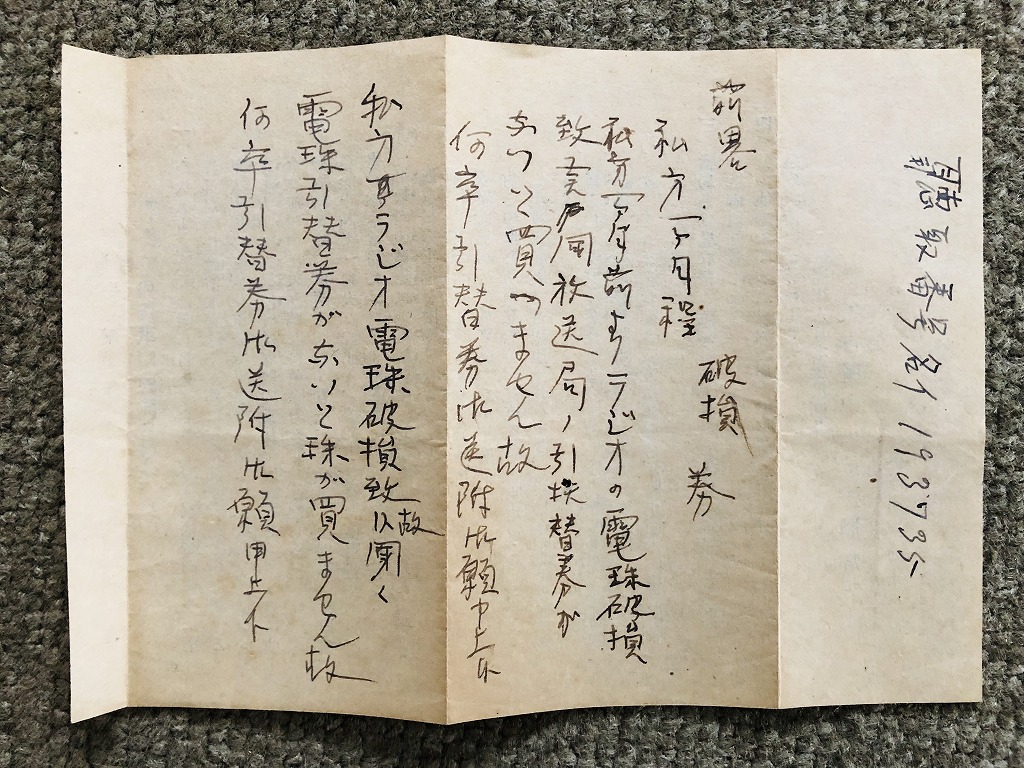 聴取番号第193735
前畧
私方一ヶ月程
破損
券
私方一ヶ月前ヨリラジオの電球破損
致 戸 放送局ノ引換替券が
ないと買へません故
何卒引替券御送附御願申上候
私方ラジオ電球破損致候故
電球引替券がないと球が買ません故
何卒引替券御送附御願申上候